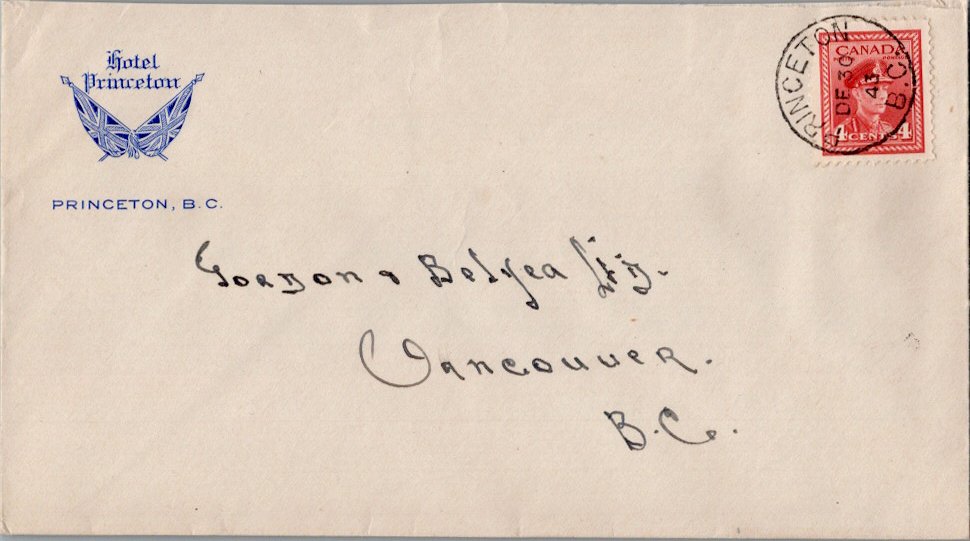 Hotel
Princeton
PRINCETON, B.C.
PRINCETON
DE 30
43
B.C.
CANADA
4 CENTS 4
Gordon & Belyea Ltd.
Vancouver.
B.C.